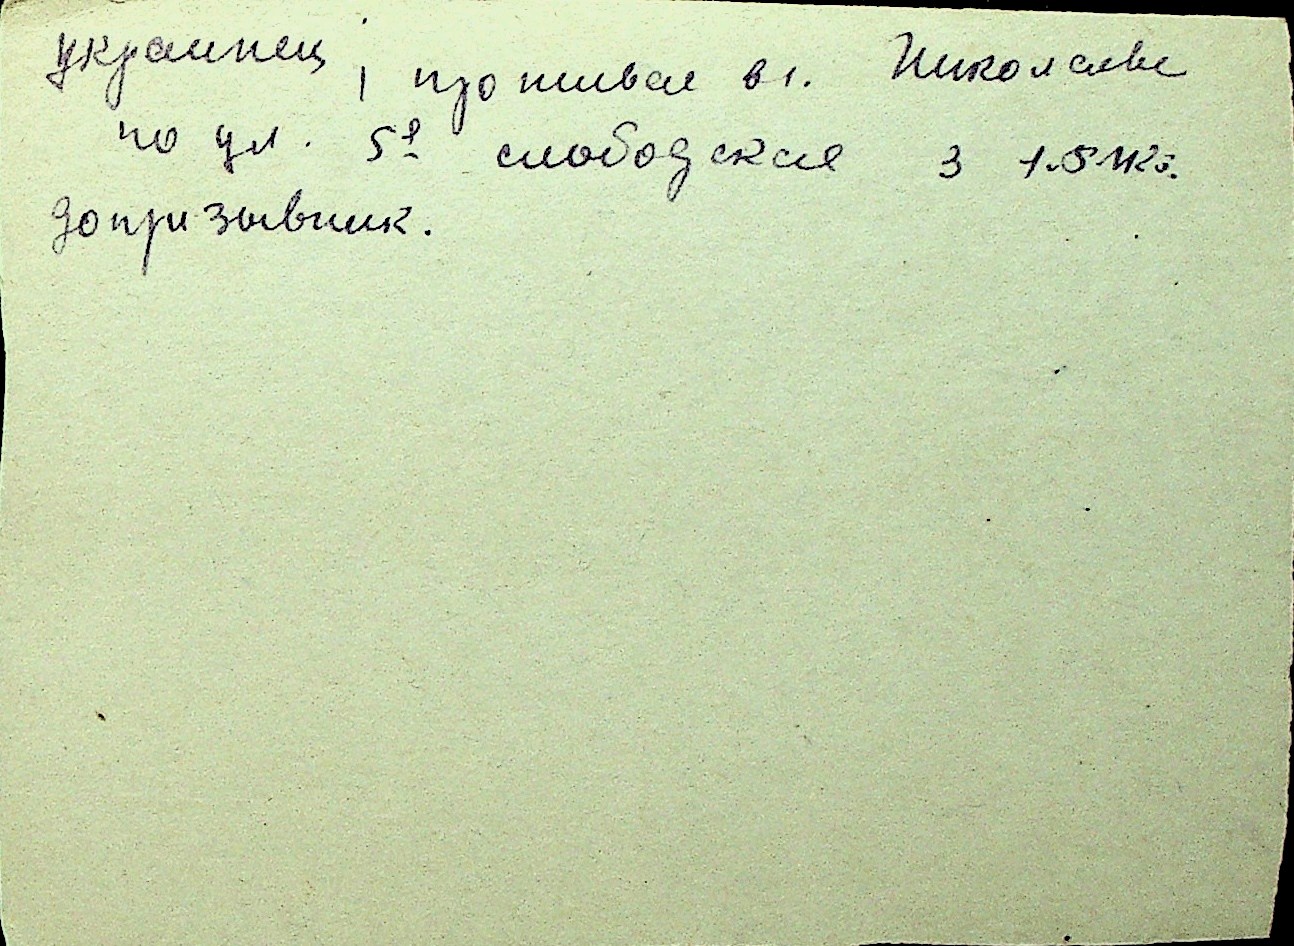 украинец, проживал в г. Николаеве
по ул. 5я слободская 3
допризывник.